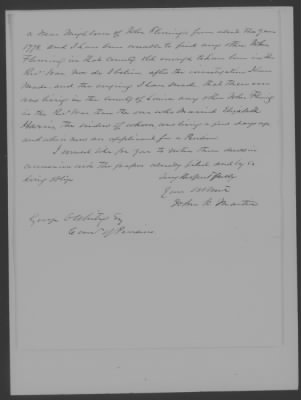 a near neighbour of John Fleming from about the year
1778 and I have been unable to find any other John
Fleming in that county old enough to have been in the
Rev War nor do I believe after the investigation I have
made and the enquiry I have made that there ever
was living in the county of Louisa any other John Fleming
in the Rev War than the one who married Elizabeth
the widow of whom was living a few days ago
and who is now an applicant for a Pension
I would like for you to return these
with the papers already filed and by so
doing oblige
Very Respectfully
Your Obt Servt
John R. Martin
George C Whiting Esq
Comr of Pensions